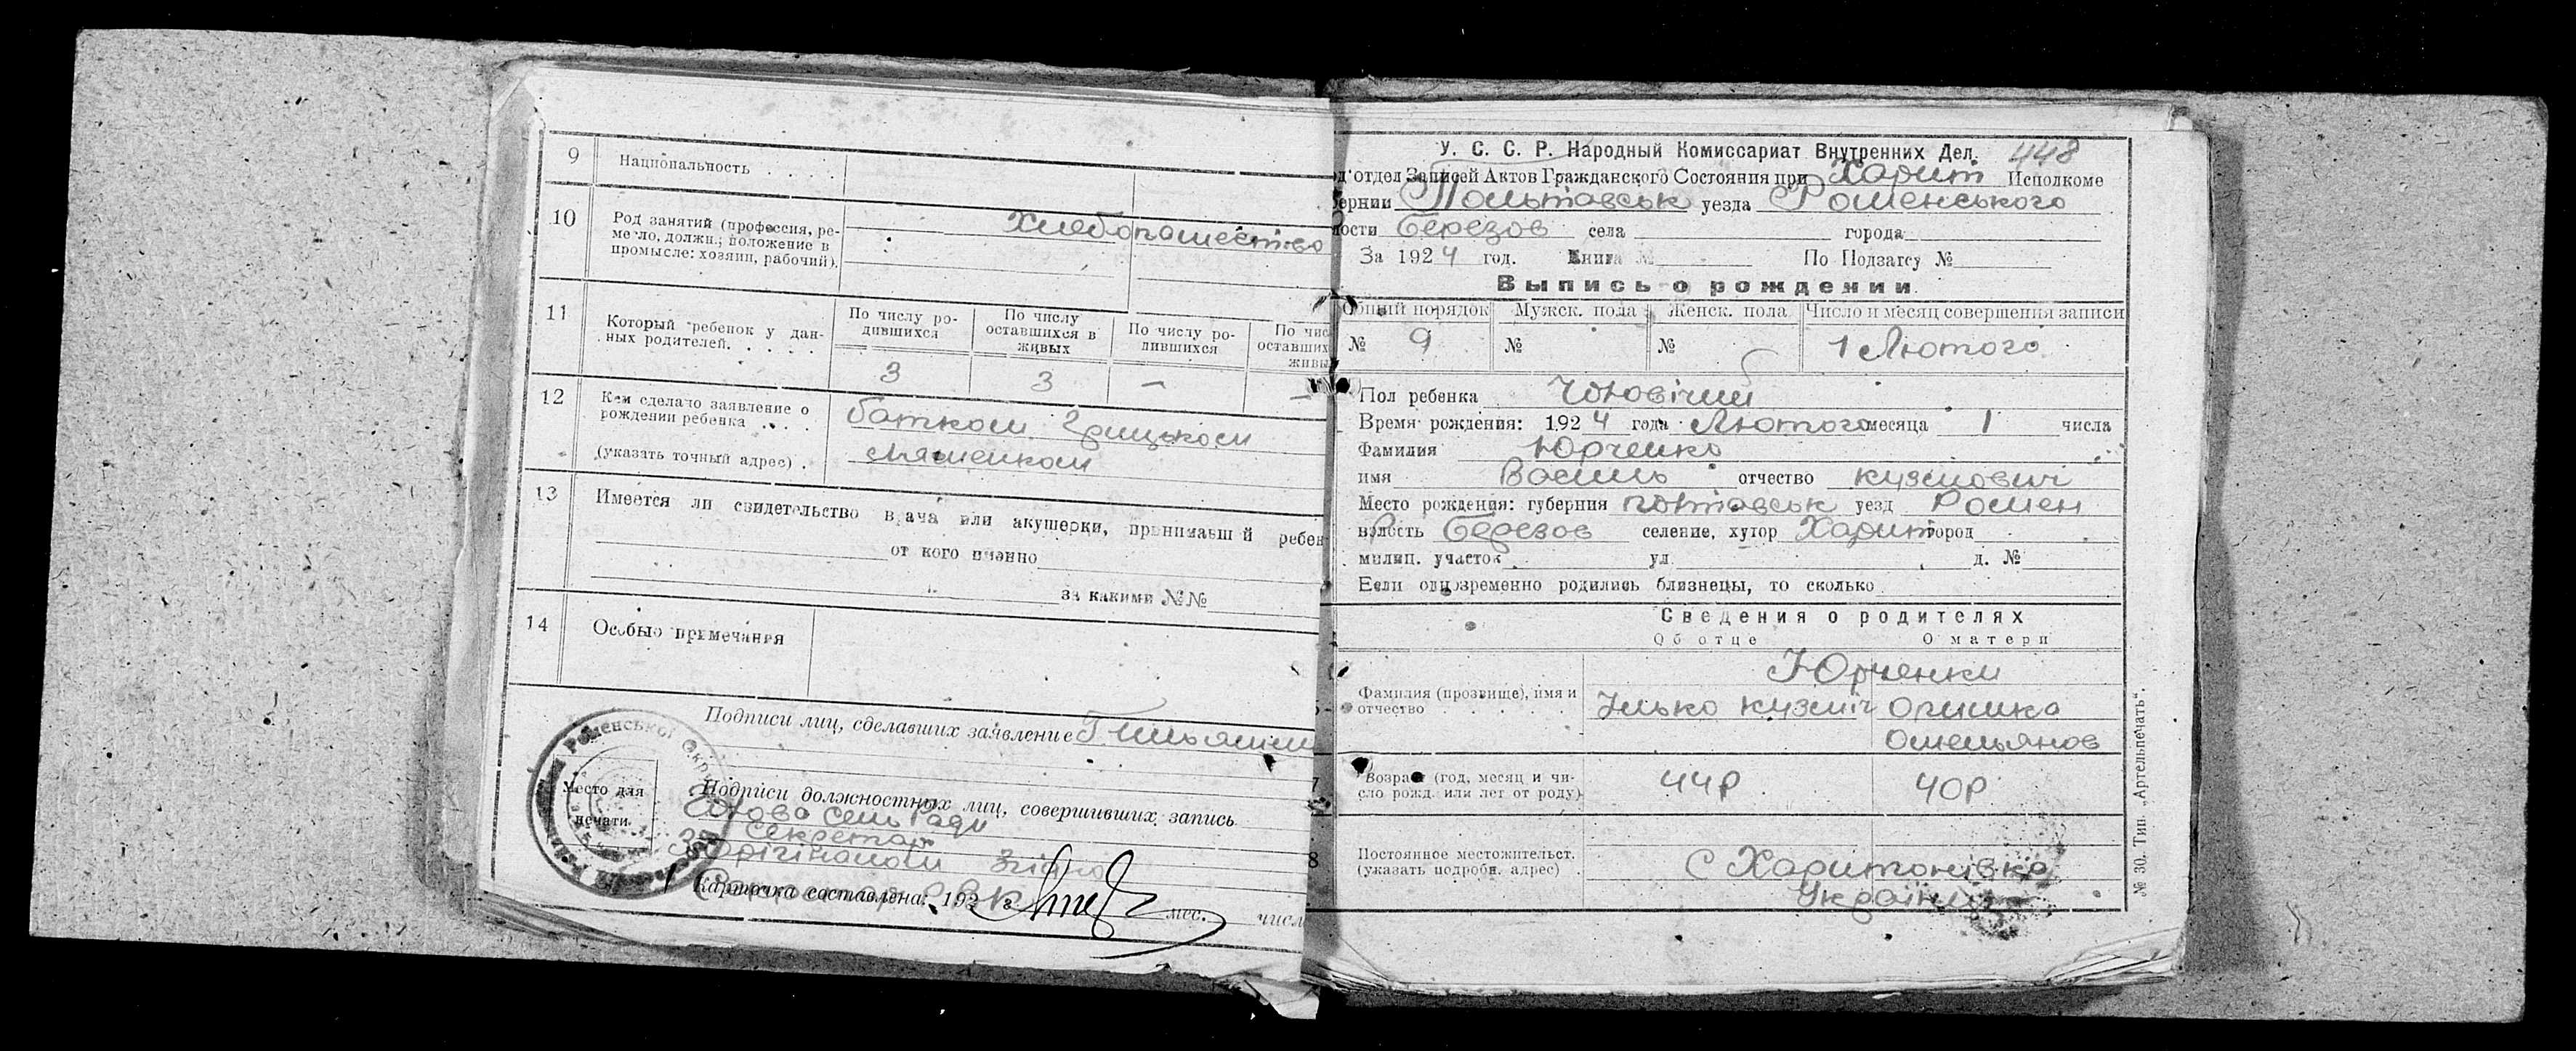 9 Национальность . . . . .
10 Род занятий (профессия, ре-
месло, должн.; положение в
промысле: хозяин, рабочий).
Хлебопашество
11 Который ребенок у дан-
ных родителей. . . . . .
По числу ро-
дившихся
По числу
оставшихся в
живых
По числу ро-
дившихся
По чис
оставших
живы
3 3 — —
12 Кем сделано заявление о
рождении ребенка . . . .
(указать точный адрес) .
батком Грицьком
Ляшенком
13 Имеется ли свидетельство врача или акушерки, принимавшей ребен
от кого именно
за какими №№
14 Особые примечания
Подписи лиц, сделавших заявление
Место для
печати.
Роменської Окри
Подписи должностных лиц, совершивших запись
Голова Сель Ради
Секретар
З орігіналом Згідно
Карточка составлена: 192 г. мес. числ
У. С. С. Р. Народный Комиссариат Внутренних Дел. 448
д'отдел Записей Актов Гражданского Состояния при Харит Исполкоме
ернии Польтавськ уезда Роменського
лости Березов села города
За 1924 год. Книга № По Подзагсу №
Выпись о рождении.
Общий порядок Мужск. пола Женск. пола Число и месяц совершения записи
№ 9 № № 1 Лютого
Пол ребенка Чоловічий
Время рождения: 1924 года Лютого месяца 1 числа
Фамилия Юрченко
имя Василь отчество Кузмович
Место рождения: губерния Полтавськ уезд Ромен
волость Березов селение, хутор Харит город
милиц. участок ул д. №
Если одновременно родились близнецы, то сколько
Сведения о родителях
Об отце О матери
Юрченки
Фамилия (прозвище), имя и
отчество . . . . . .
Илько Кузміч Оришка
Омельянов
7 Возраст (год, месяц и чи-
сло рожд. или лет от роду)
44р 40р
8 Постоянное местожительст.
(указать подробн. адрес) .
С Харитонівка
Україна
№ 30. Тип. „Артельпечать“.